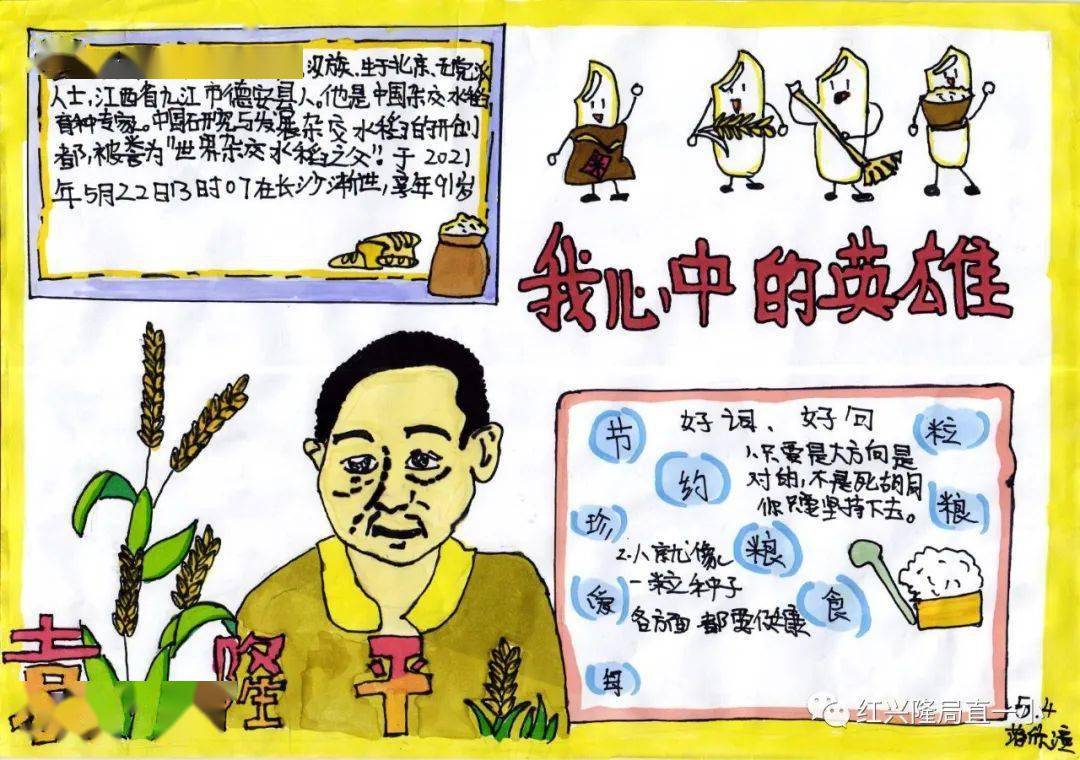 汉族、生于北京、无党派
人士,江西省九江市德安县人。他是中国杂交水稻
育种专家。中国研究与发展杂交水稻的开创
都,被誉为"世界杂交水稻之父".于2021
年5月22日13时07在长沙浙世,享年91岁
我心中的英雄
好词、好句
1.只要是大方向是
对的,不是死胡同
你只要坚持下去。
2.人就像
一粒种子
各方面都要健康
节
约
粮
食
珍
爱
每
粒
粮
袁隆平
红兴隆局直一小
5.4